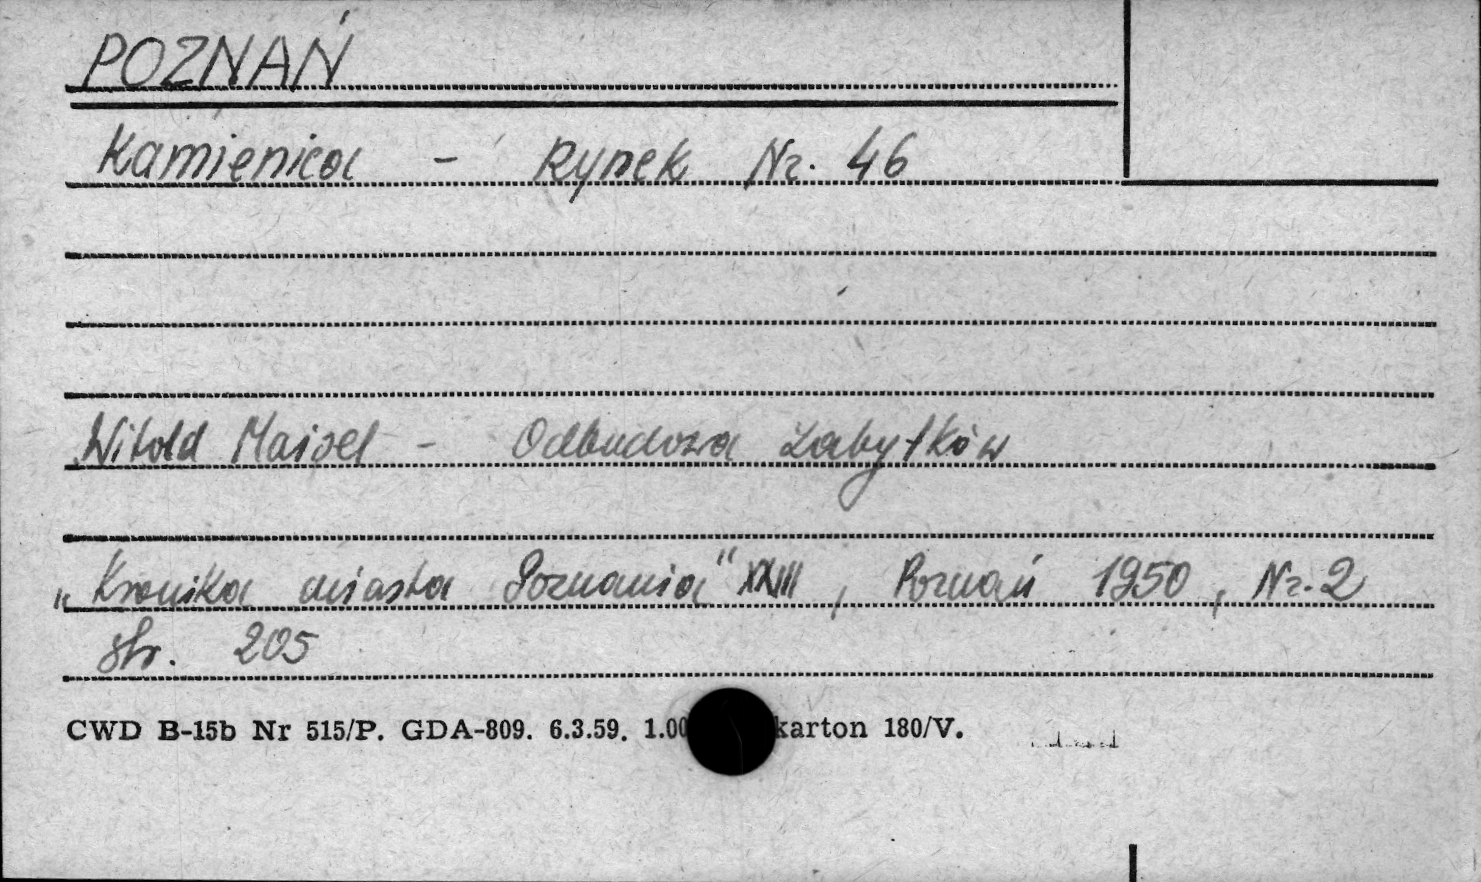 POZNAŃ
Kamienica - Rynek Nr. 46
Witold Maisel - Odbudowa zabytków
„Kronika miasta Poznania" XXIII, Poznań 1950, Nr. 2
str. 205
CWD B-15b Nr 515/P. GDA-809. 6.3.59. 1.00 karton 180/V.